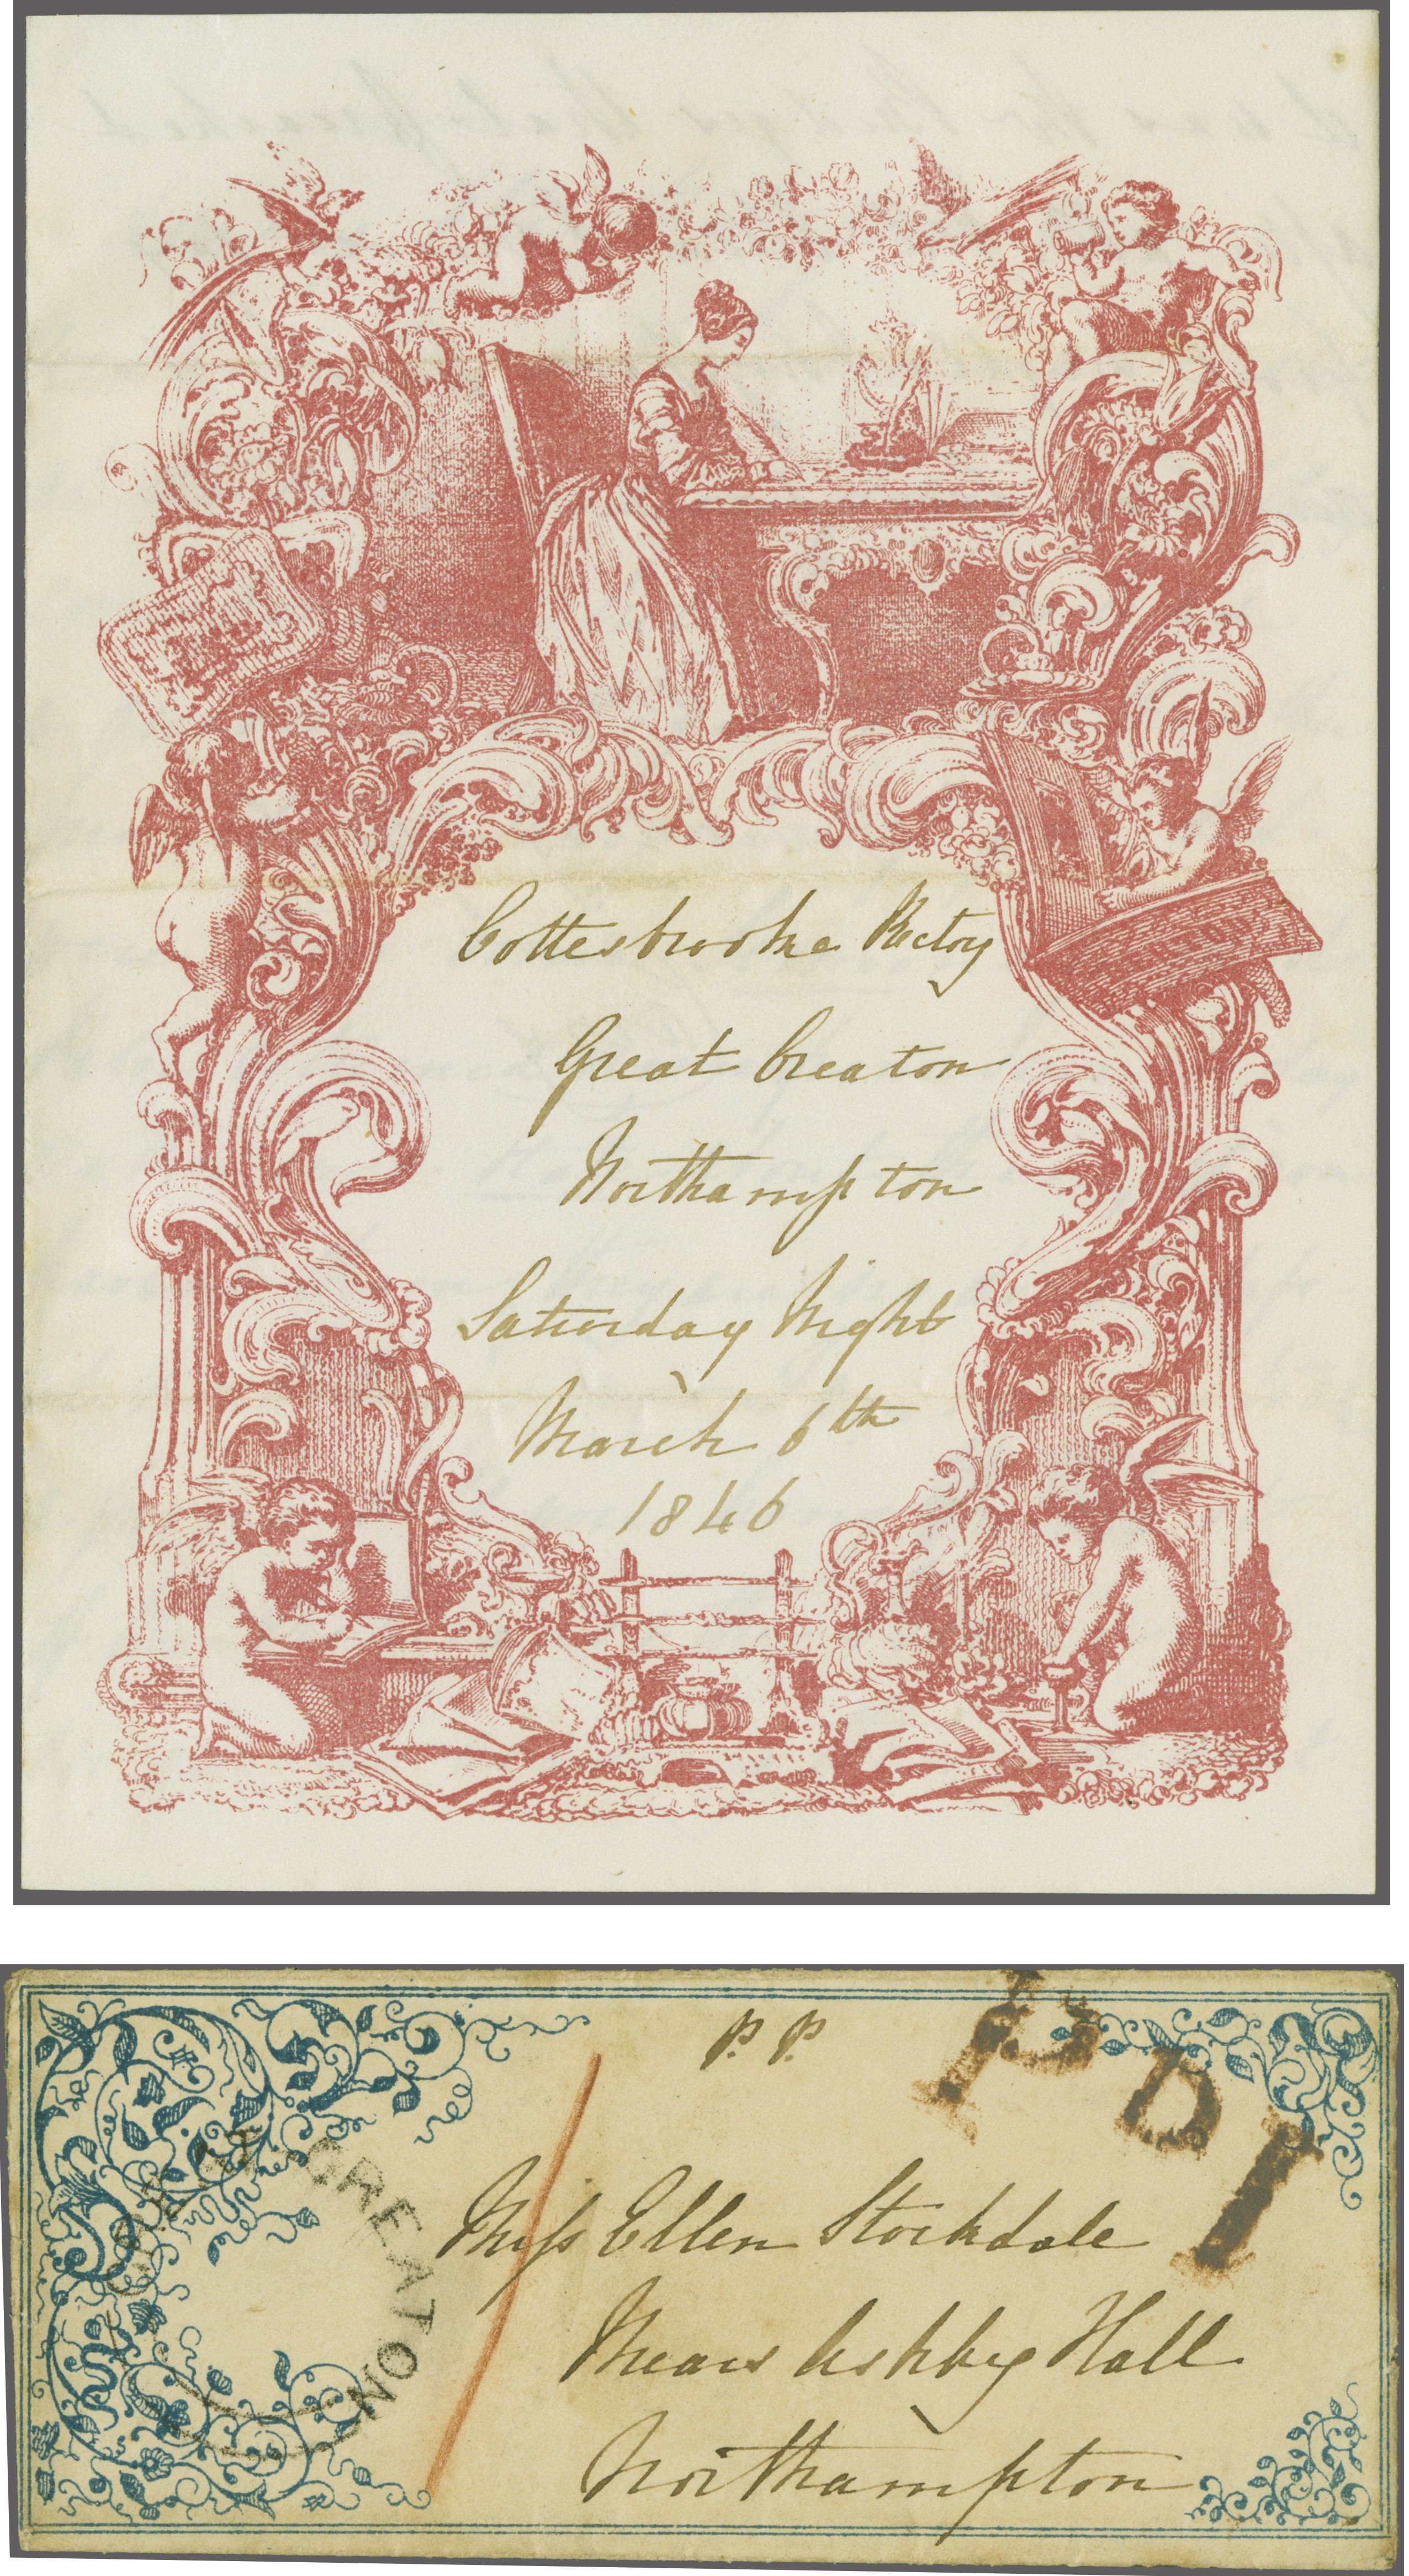 Cottesbrooke Rectory
Great Creaton
Northampton
Saturday Night
March 6th
1846
P.P.
PD1
GREAT CREATON
Miss Ellen Stockdale
Mears Ashby Hall
Northampton